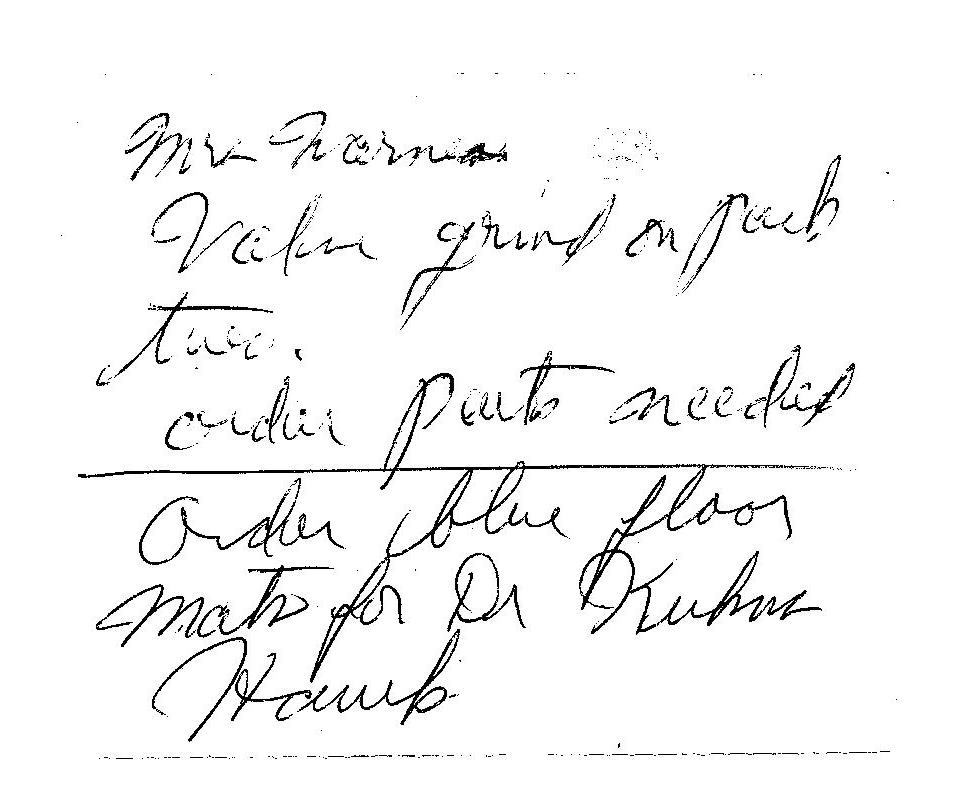 Mrs
Valve grind on
two.
order parts needed
Order blue floor
mats for Dr Kuhns
Hawk